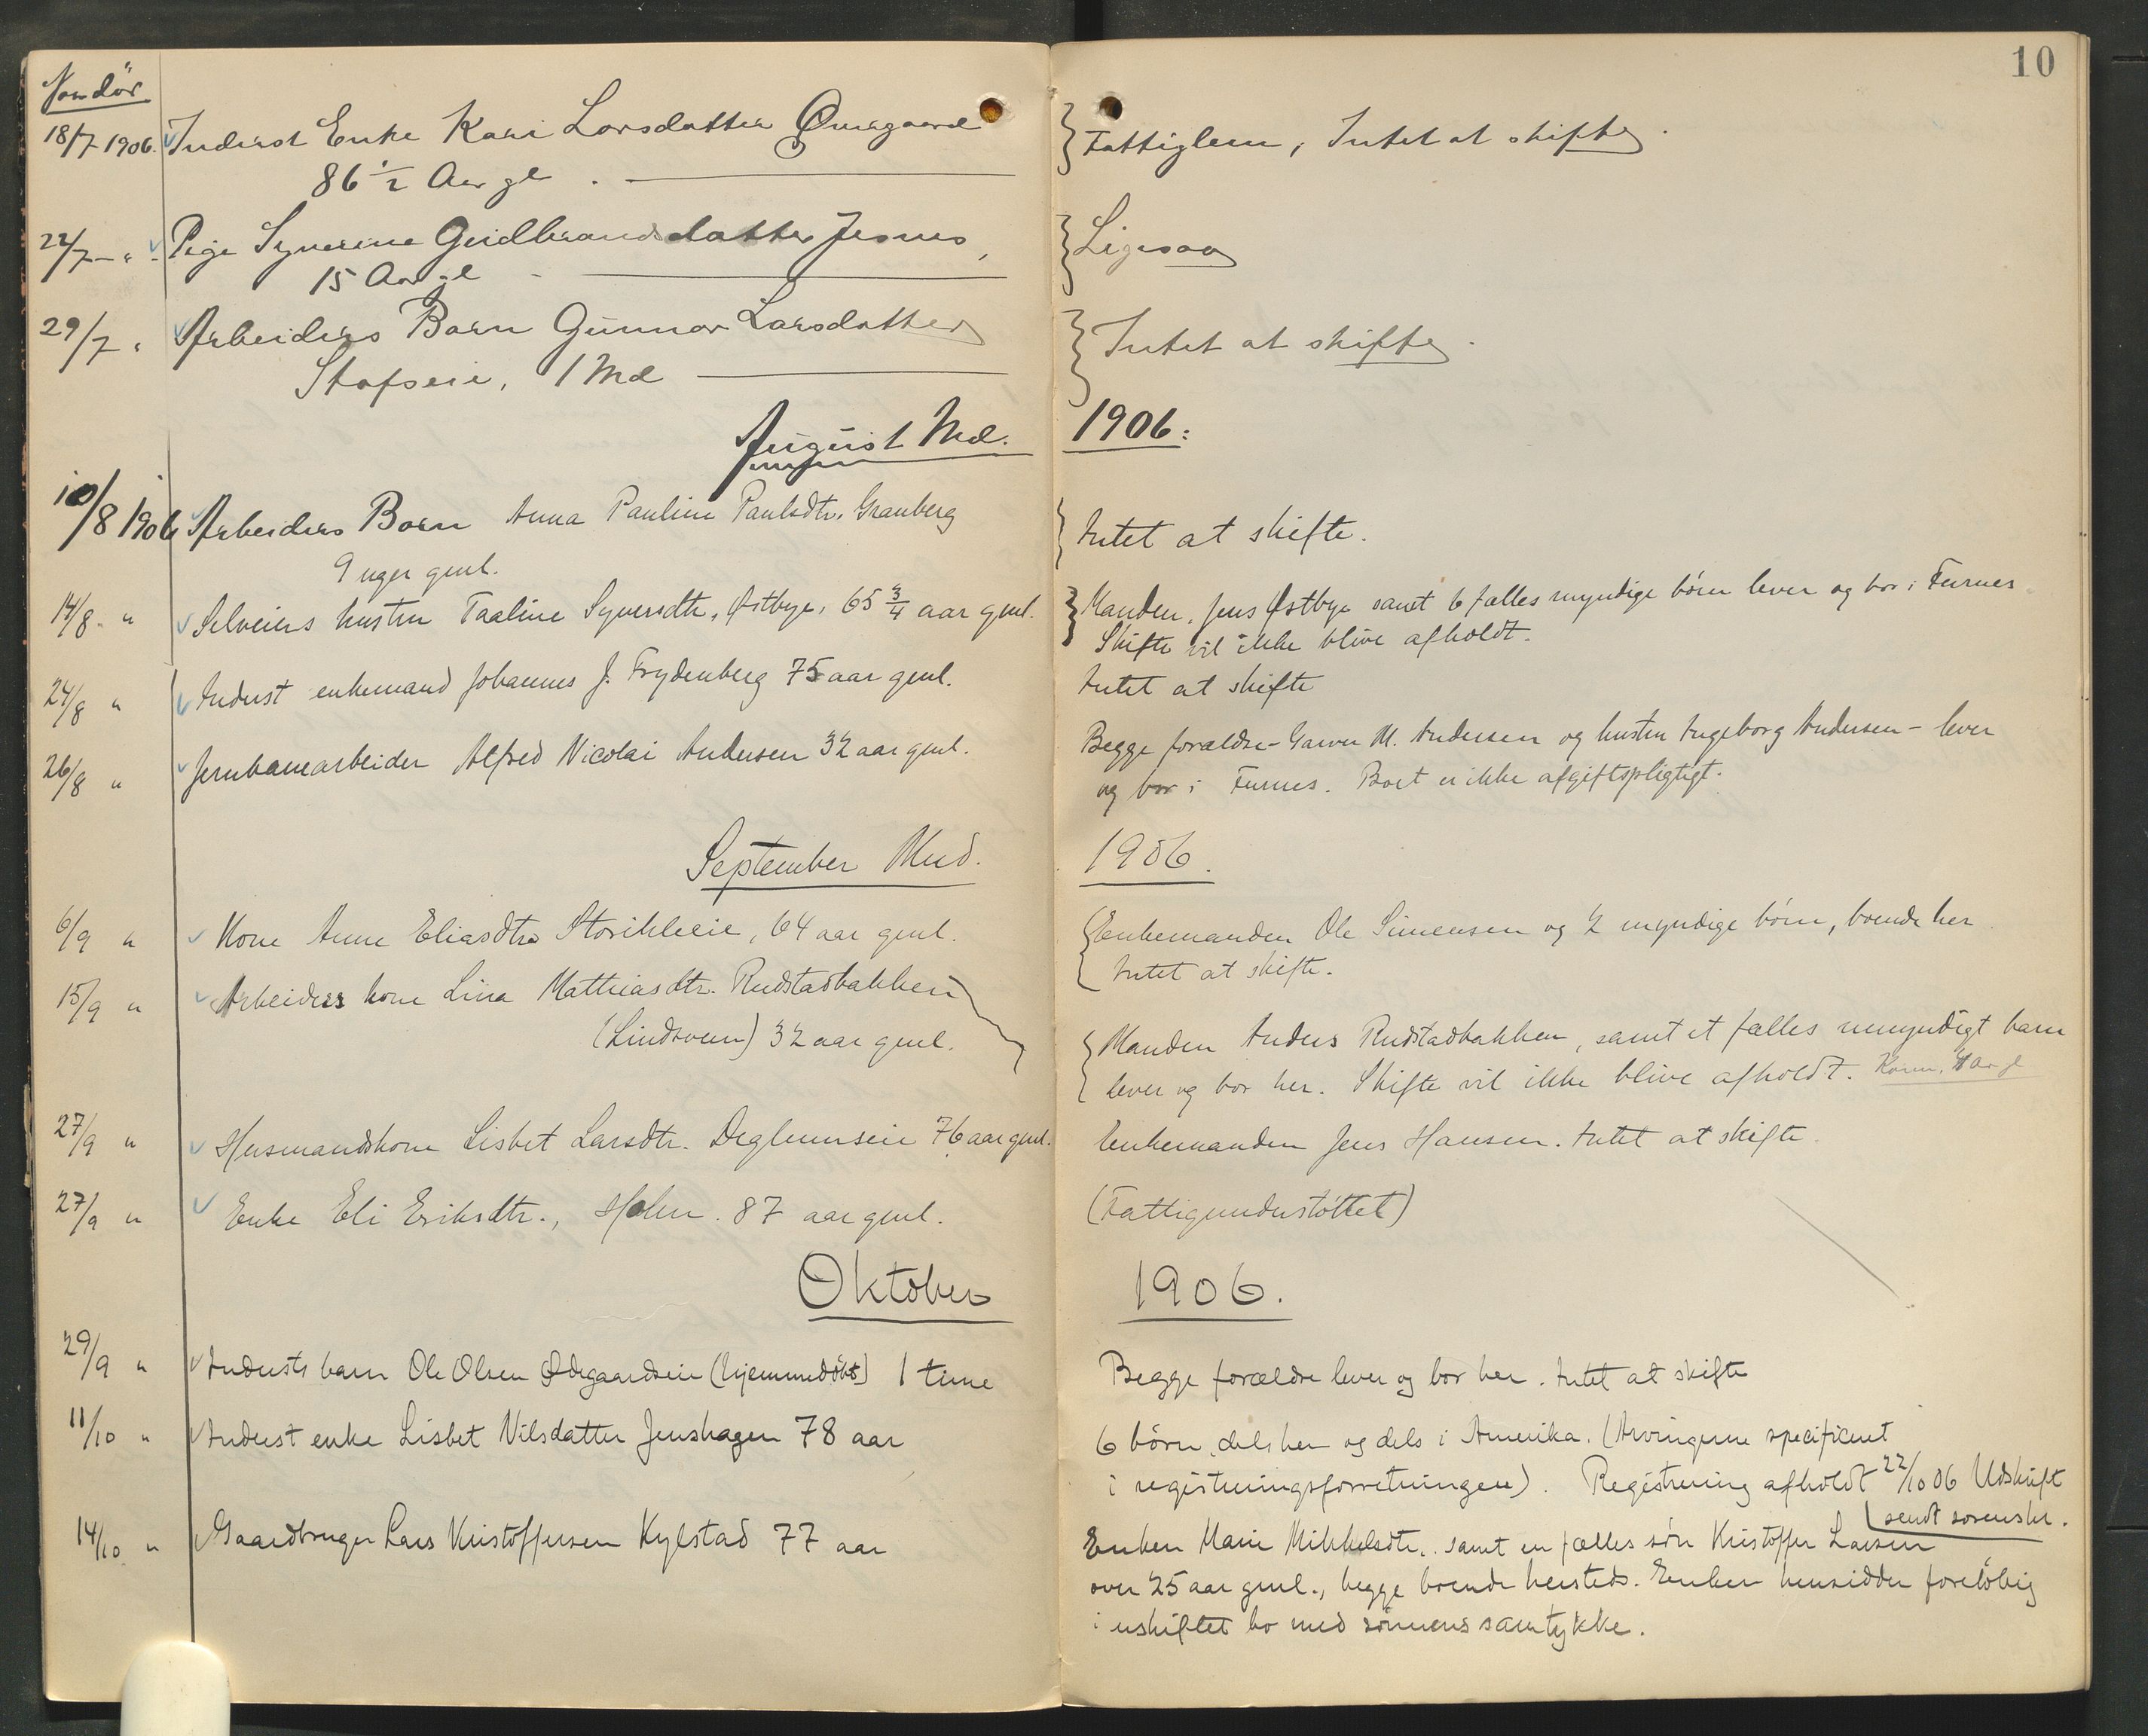 10
Naar dör
18/7 1906. Inderst Enke Kari Larsdatter
86 ½ Aar gl.
Fattiglem, Intet at skifte.
22/7 - " - Pige Syverine Gudbrandsdatter Jesnes,
15 Aar gl -
Ligesaa
29/7 " Arbeiders Barn Gunnor Larsdatter
Stafseie, 1 Md
Intet at skifte.
August Md. 1906:
10/8 1906 Arbeiders Barn Anna Pauline Paulsdtr. Granberg
9 uger gml.
Intet at skifte.
14/8. " Selveiers hustru Taaline Syversdtr. Østbye, 65 ¾ aar gml.
Manden, Jens Østbye samt 6 fælles myndige börn lever og bor i Furnes.
Skifte vil ikke blive afholdt.
24/8 " Inderst enkemand Johannes J. Frydenberg 75 aar gml.
Intet at skifte
26/8 " Jernbanearbeider Alfred Nicolai Andersen 32 aar gml.
Begge forældre - Garver M. Andersen og hustru Ingeborg Andersen - lever
og bor i Furnes. Boet er ikke afgiftspligtigt.
September Mnd. 1906.
6/9 " Kone Anne Eliasdtr. 64 aar gml.
Enkemanden Ole Simensen og 2 myndige börn, boende her
Intet at skifte.
15/9 " Arbeiders kone Lina Mathiasdtr. Rudstadbakken
(Lindsveen) 32 aar gml.
Manden Anders Rudstadbakken, samt et fælles umyndigt barn
lever og bor her. Skifte vil ikke blive afholdt.
27/9 " Husmandskone Lisbet Larsdtr. Deglumseie 76 aar gml.
Enkemanden Jens Hansen. Intet at skifte.
27/9 " Enke Eli Eriksdtr., Holm. 87 aar gml.
(Fattigunderstöttet)
Oktober 1906.
29/9 " Indersts barn Ole Olsen Ødegaardseie (hjemmedöbt) 1 time
Begge forældre lever og bor her. Intet at skifte
11/10 " Inderst enke Lisbet Nilsdatter Jenshagen 78 aar
6 börn, dels her og dels i Amerika. (Arvingerne specificeret
i registreringsforretningen). Registrering afholdt 22/10 06 Udskrift
sendt sorenskr.
14/10 " Gaardbruger Lars Kristoffersen Kylstad 77 aar
Enken Marie Mikkelsdtr. samt en fælles sön Kristoffer Larsen
over 25 aar gml., begge boende hersteds. Enken hensidder foreløbig
i uskiftet bo med sönnens samtykke.